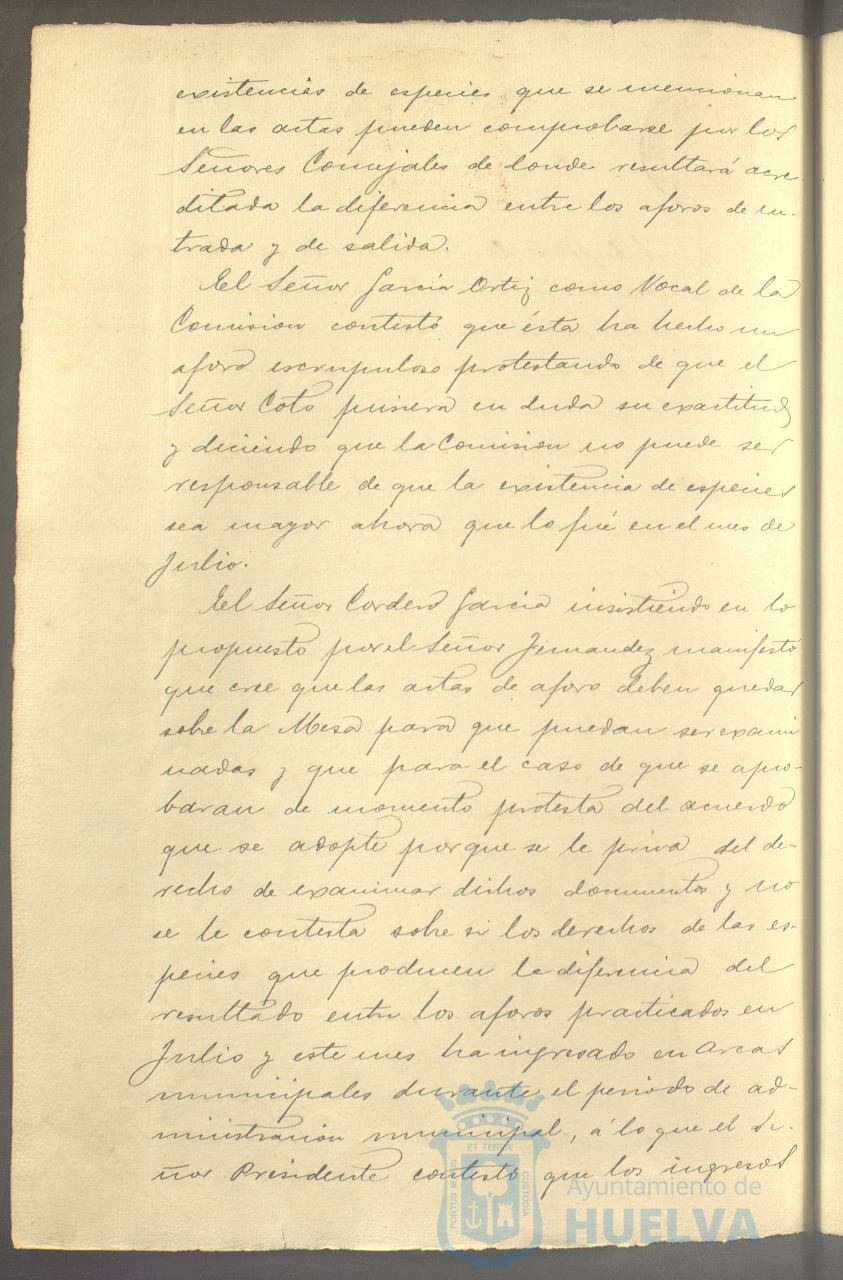 existencias de especies que se mencionan
en las actas pueden comprobarse por los
Señores Concejales de donde resultará acre
ditada la diferencia entre los aforos de en-
trada y de salida.
El Señor Garcia Ortiz como Vocal de la
Comision contestó que ésta ha hecho un
aforo escrupuloso protestando de que el
Señor Coto pusiera en duda su exactitud
y diciendo que la Comision no puede ser
responsable de que la existencia de especies
sea mayor ahora que lo fué en el mes de
Julio.
El Señor Cordero Garcia insistiendo en lo
propuesto por el Señor Fernandez manifestó
que cree que las actas de aforo deben quedar
sobre la Mesa para que puedan ser exami
nadas y que para el caso de que se apro-
baran de momento protesta del acuerdo
que se adopte porque se le priva del de-
recho de examinar dichos documentos y no
se le contesta sobre si los derechos de las es-
pecies que producen la diferencia del
resultado entre los aforos practicados en
Julio y este mes ha ingresado en arcas
municipales durante el periodo de ad-
ministracion municipal, á lo que el Se-
ñor Presidente contestó que los ingresos
PORTUS MARIS ET TERRE CUSTODIA
Ayuntamiento de
HUELVA